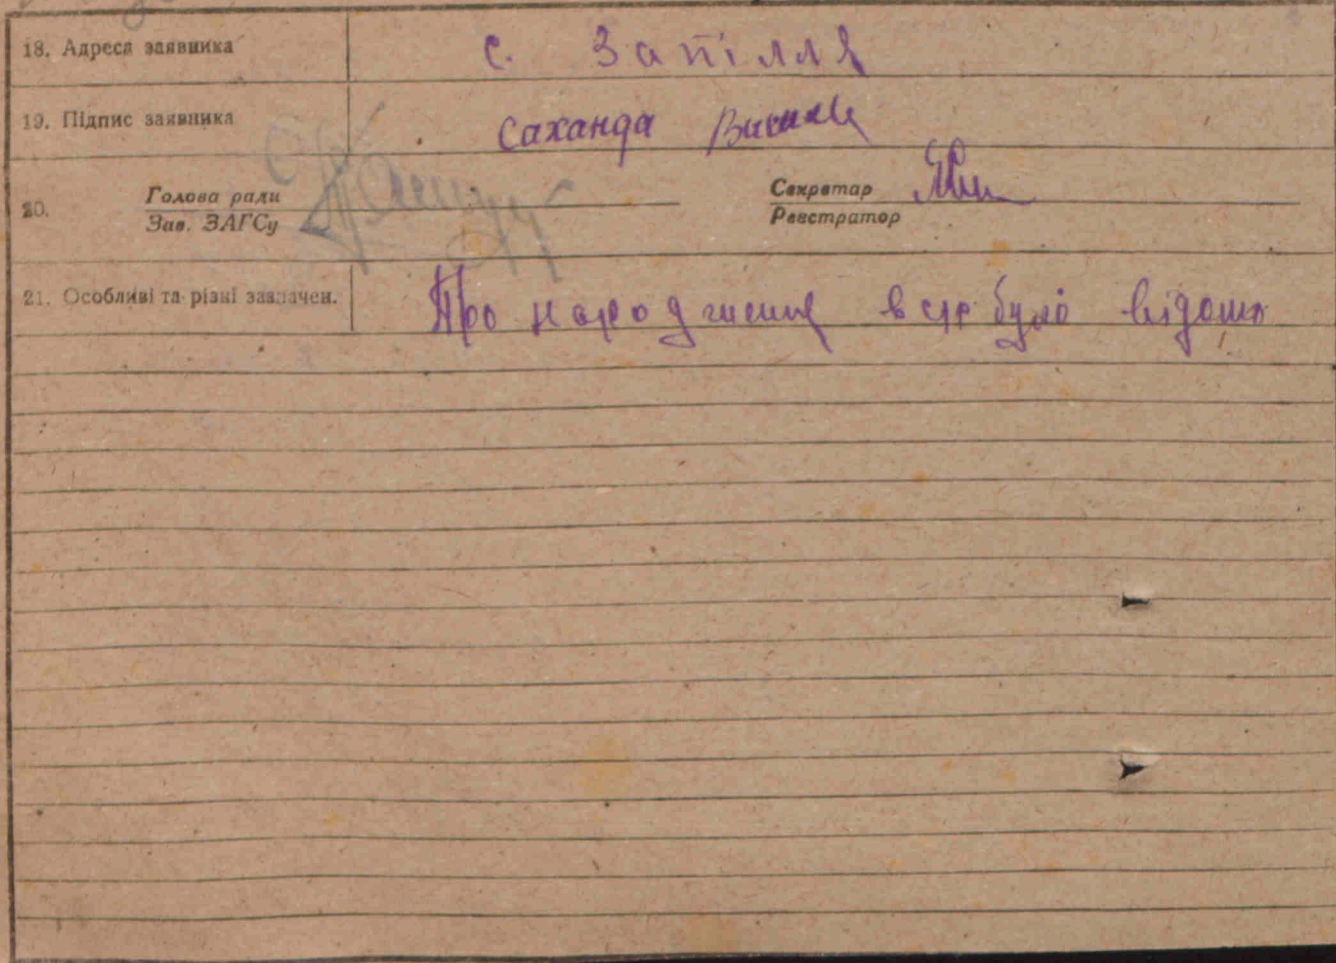 18. Адреса заявника с. Запілля
19. Підпис заявника Саханда
20. Голова ради Секретар
Зав. ЗАГСу Реєстратор
21. Особливі та різні зазначен. Про народження в с/р було відомо